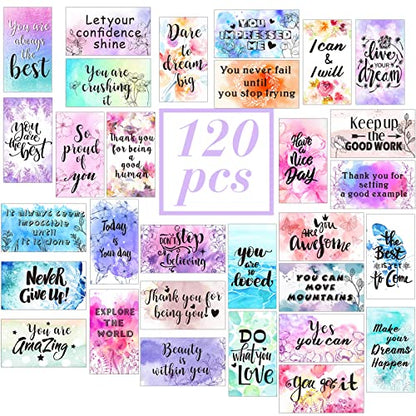 You are
always
the
best
Let your
confidence
shine
You are
crushing
it
Dare
to
dream
big
YOU
IMPRESSED
ME
You never fail
until
you stop trying
I can
&
I will
live
YOUR
dream
you
are
the best
So
proud of
you
Thank you
for being
a good
human
120
pcs
Have
a
Nice
Day
Keep up
the
GOOD WORK
Thank you for
setting
a good example
It always seems
impossible
until
it is done
Today
is
Your day
DON'T
STOP
believing
you
are
so
loved
You
ARE
Awesome
the
Best
is yet
to Come
NEVER
Give Up!
EXPLORE
THE
WORLD
Thank you for
being you!
YOU CAN
MOVE
MOUNTAINS
You are
AMAZING
Beauty
is within you
DO
what you
LOVE
Yes
you can
you got it
Make
your
Dreams
Happen